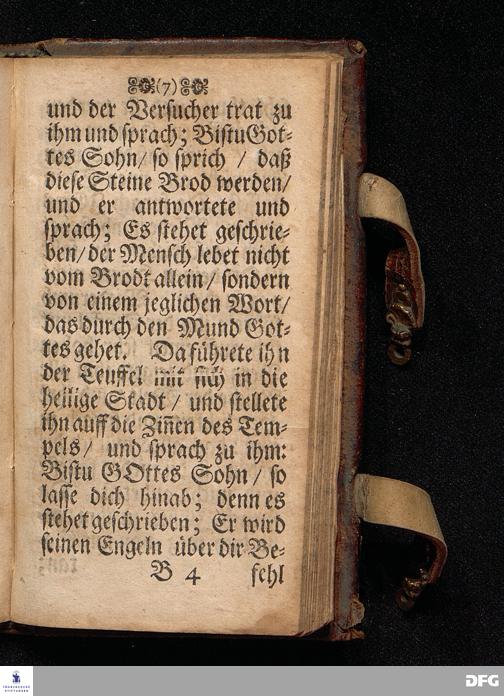 (7)
und der Versucher trat zu
ihm und sprach; Bistu Got-
tes Sohn/ so sprich / daß
diese Steine Brod werden/
und er antwortete und
sprach; Es stehet geschrie-
ben/ der Mensch lebet nicht
vom Brodt allein/ sondern
von einem jeglichen Wort/
das durch den Mund Got-
tes gehet. Da führete ihn
der Teuffel mit sich in die
heilige Stadt / und stellete
ihn auff die Zin̄en des Tem-
pels/ und sprach zu ihm:
Bistu GOttes Sohn / so
lasse dich hinab; denn es
stehet geschrieben; Er wird
seinen Engeln über dir Be-
B 4 fehl
DFG